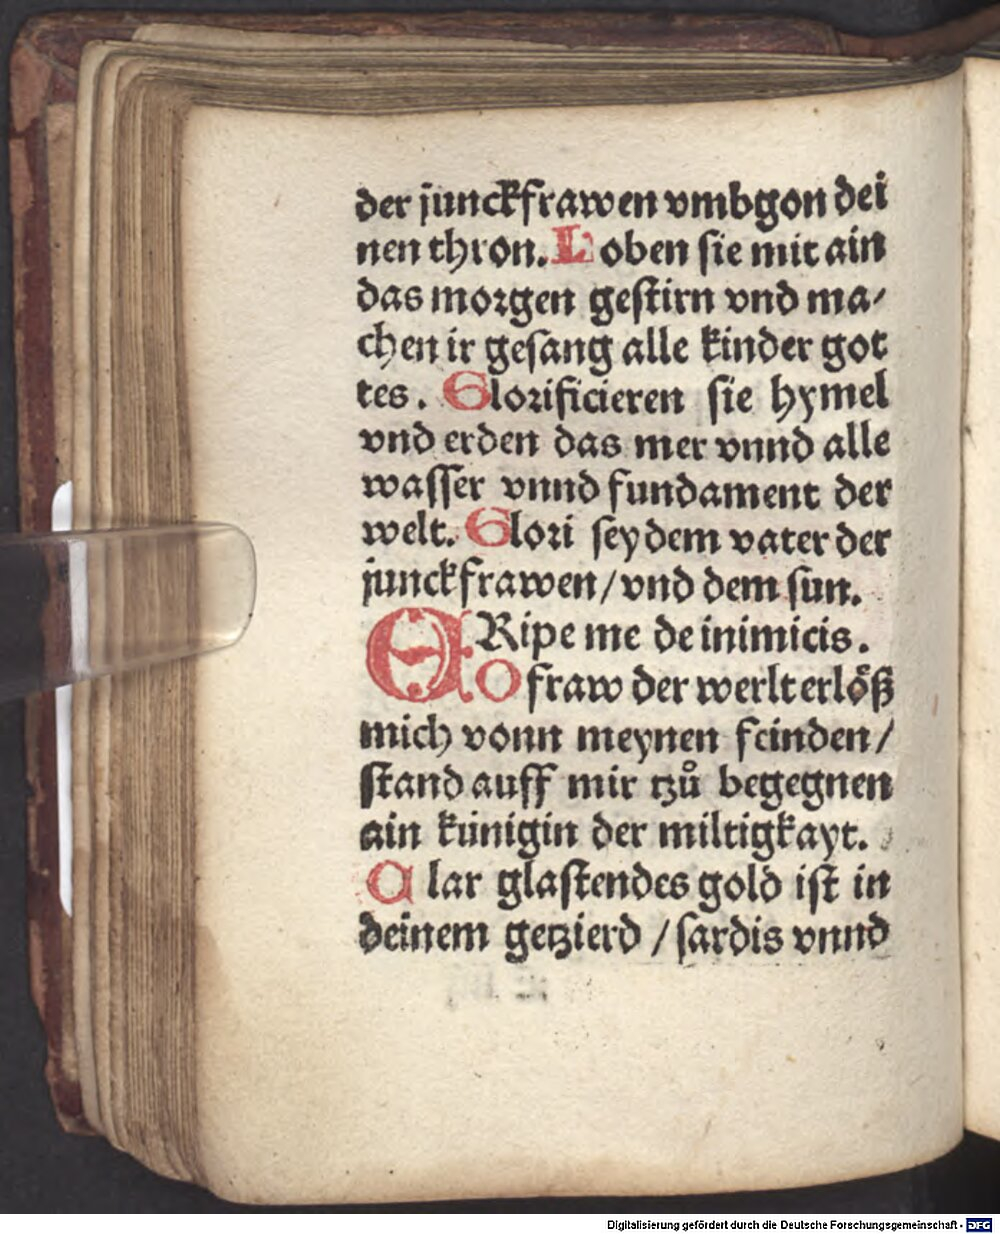 der junckfrawen vmbgon dei
nen thron. Loben sie mit ain
das morgen gestirn vnd ma⸗
chen ir gesang alle kinder got
tes. Glorificieren sie hymel
vnd erden das mer vnnd alle
wasser vnnd fundament der
welt. Glori sey dem vater der
junckfrawen / vnd dem sun.
ERipe me de inimicis.
O fraw der werlt erlöß
mich vonn meynen feinden /
stand auff mir tzů begegnen
ain künigin der miltigkayt.
Clar glastendes gold ist in
deinem getzierd / sardis vnnd
Digitalisierung gefördert durch die Deutsche Forschungsgemeinschaft - DFG